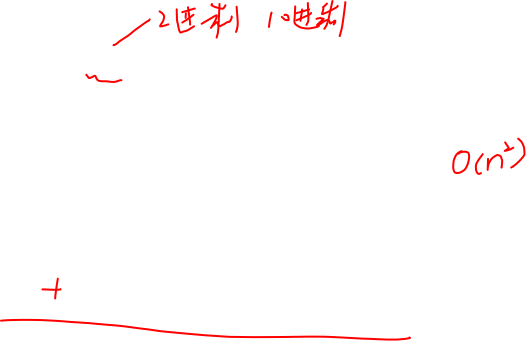 2进制 10进制
O(n²)
+